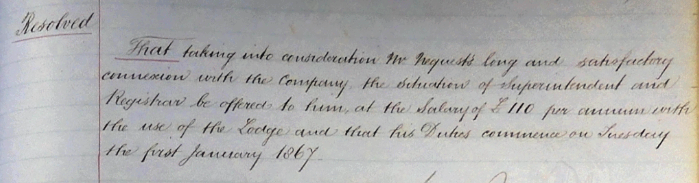 Resolved
That taking into consideration Mr Request's long and satisfactory
connexion with the Company, the situation of Superintendent and
Registrar be offered to him, at the Salary of £110 per annum with
the use of the Lodge and that his Duties commence on Tuesday
the first January 1867.